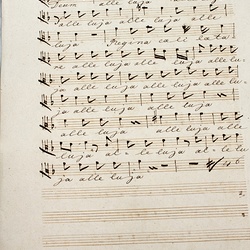 Deum alle luja
alle luja alle luja alle
luja Regina cæli læta
re alle luja alle luja alle lu
ja alle luja alle luja alle lu
ja alle luja alle luja
alle luja alle luja alle
luja al le luja al le lu
ja alle luja